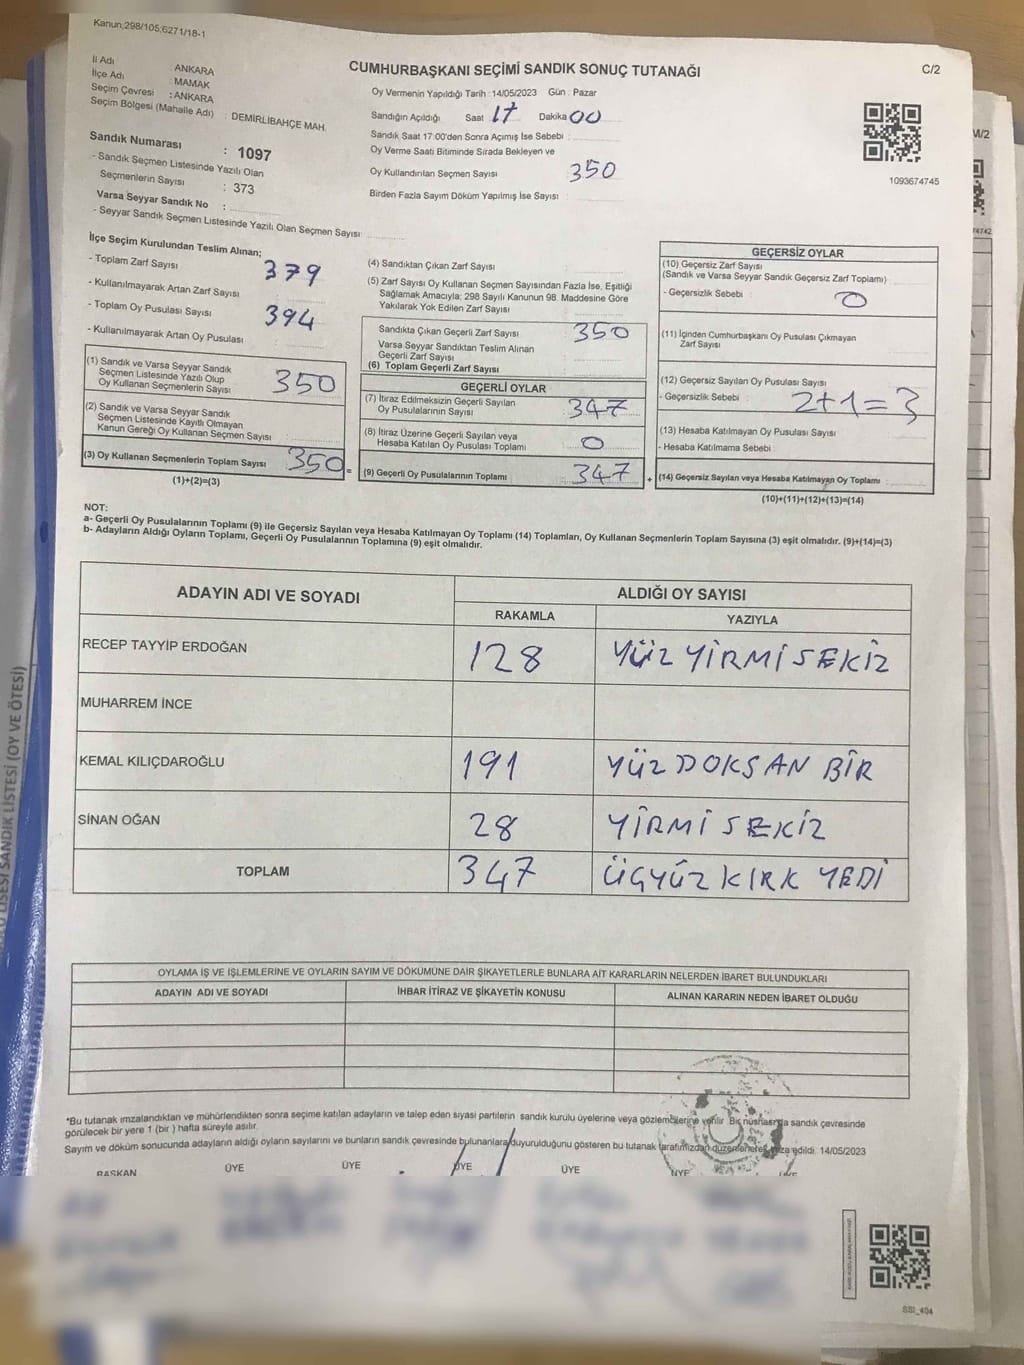 Kanun:298/105;6271/18-1
İl Adı : ANKARA
İlçe Adı : MAMAK
Seçim Çevresi : ANKARA
Seçim Bölgesi (Mahalle Adı) : DEMİRLİBAHÇE MAH.
Sandık Numarası : 1097
- Sandık Seçmen Listesinde Yazılı Olan
Seçmenlerin Sayısı : 373
Varsa Seyyar Sandık No :
- Seyyar Sandık Seçmen Listesinde Yazılı Olan Seçmen Sayısı
CUMHURBAŞKANI SEÇİMİ SANDIK SONUÇ TUTANAĞI
C/2
Oy Vermenin Yapıldığı Tarih : 14/05/2023 Gün : Pazar
Sandığın Açıldığı Saat 17 Dakika 00
Sandık Saat 17:00'den Sonra Açımış İse Sebebi :
Oy Verme Saati Bitiminde Sırada Bekleyen ve
Oy Kullandırılan Seçmen Sayısı 350
Birden Fazla Sayım Döküm Yapılmış İse Sayısı :
1093674745
M/2
İlçe Seçim Kurulundan Teslim Alınan;
- Toplam Zarf Sayısı 379
- Kullanılmayarak Artan Zarf Sayısı
- Toplam Oy Pusulası Sayısı 394
- Kullanılmayarak Artan Oy Pusulası
(1) Sandık ve Varsa Seyyar Sandık
Seçmen Listesinde Yazılı Olup
Oy Kullanan Seçmenlerin Sayısı 350
(2) Sandık ve Varsa Seyyar Sandık
Seçmen Listesinde Kayıtlı Olmayan
Kanun Gereği Oy Kullanan Seçmen Sayısı
(3) Oy Kullanan Seçmenlerin Toplam Sayısı 350 =
(1)+(2)=(3)
(4) Sandıktan Çıkan Zarf Sayısı
(5) Zarf Sayısı Oy Kullanan Seçmen Sayısından Fazla İse, Eşitliği
Sağlamak Amacıyla; 298 Sayılı Kanunun 98. Maddesine Göre
Yakılarak Yok Edilen Zarf Sayısı
Sandıkta Çıkan Geçerli Zarf Sayısı 350
Varsa Seyyar Sandıktan Teslim Alınan
Geçerli Zarf Sayısı
(6) Toplam Geçerli Zarf Sayısı
GEÇERLİ OYLAR
(7) İtiraz Edilmeksizin Geçerli Sayılan
Oy Pusulalarının Sayısı 347
(8) İtiraz Üzerine Geçerli Sayılan veya
Hesaba Katılan Oy Pusulası Toplamı 0
(9) Geçerli Oy Pusulalarının Toplamı 347 +
GEÇERSİZ OYLAR
(10) Geçersiz Zarf Sayısı
(Sandık ve Varsa Seyyar Sandık Geçersiz Zarf Toplamı)
- Geçersizlik Sebebi : 0
(11) İçinden Cumhurbaşkanı Oy Pusulası Çıkmayan
Zarf Sayısı
(12) Geçersiz Sayılan Oy Pusulası Sayısı
- Geçersizlik Sebebi : 2+1=3
(13) Hesaba Katılmayan Oy Pusulası Sayısı
- Hesaba Katılmama Sebebi :
(14) Geçersiz Sayılan veya Hesaba Katılmayan Oy Toplamı
(10)+(11)+(12)+(13)=(14)
NOT:
a- Geçerli Oy Pusulalarının Toplamı (9) ile Geçersiz Sayılan veya Hesaba Katılmayan Oy Toplamı (14) Toplamları, Oy Kullanan Seçmenlerin Toplam Sayısına (3) eşit olmalıdır. (9)+(14)=(3)
b- Adayların Aldığı Oyların Toplamı, Geçerli Oy Pusulalarının Toplamına (9) eşit olmalıdır.
ADAYIN ADI VE SOYADI ALDIĞI OY SAYISI
RAKAMLA YAZIYLA
RECEP TAYYİP ERDOĞAN 128 YÜZ YİRMİ SEKİZ
MUHARREM İNCE
KEMAL KILIÇDAROĞLU 191 YÜZ DOKSAN BİR
SİNAN OĞAN 28 YİRMİ SEKİZ
TOPLAM 347 ÜÇYÜZ KIRK YEDİ
OYLAMA İŞ VE İŞLEMLERİNE VE OYLARIN SAYIM VE DÖKÜMÜNE DAİR ŞİKAYETLERLE BUNLARA AİT KARARLARIN NELERDEN İBARET BULUNDUKLARI
ADAYIN ADI VE SOYADI İHBAR İTİRAZ VE ŞİKAYETİN KONUSU ALINAN KARARIN NEDEN İBARET OLDUĞU
*Bu tutanak imzalandıktan ve mühürlendikten sonra seçime katılan adayların ve talep eden siyasi partilerin sandık kurulu üyelerine veya gözlemcilerine verilir. Bir nüshası da sandık çevresinde
görülecek bir yere 1 (bir ) hafta süreyle asılır.
Sayım ve döküm sonucunda adayların aldığı oyların sayılarını ve bunların sandık çevresinde bulunanlara duyurulduğunu gösteren bu tutanak tarafımızdan düzenlenerek imza edildi. 14/05/2023
BAŞKAN ÜYE ÜYE ÜYE ÜYE ÜYE ÜYE
SSI_404
LİSESİ SANDIK LİSTESİ (OY VE ÖTESİ)